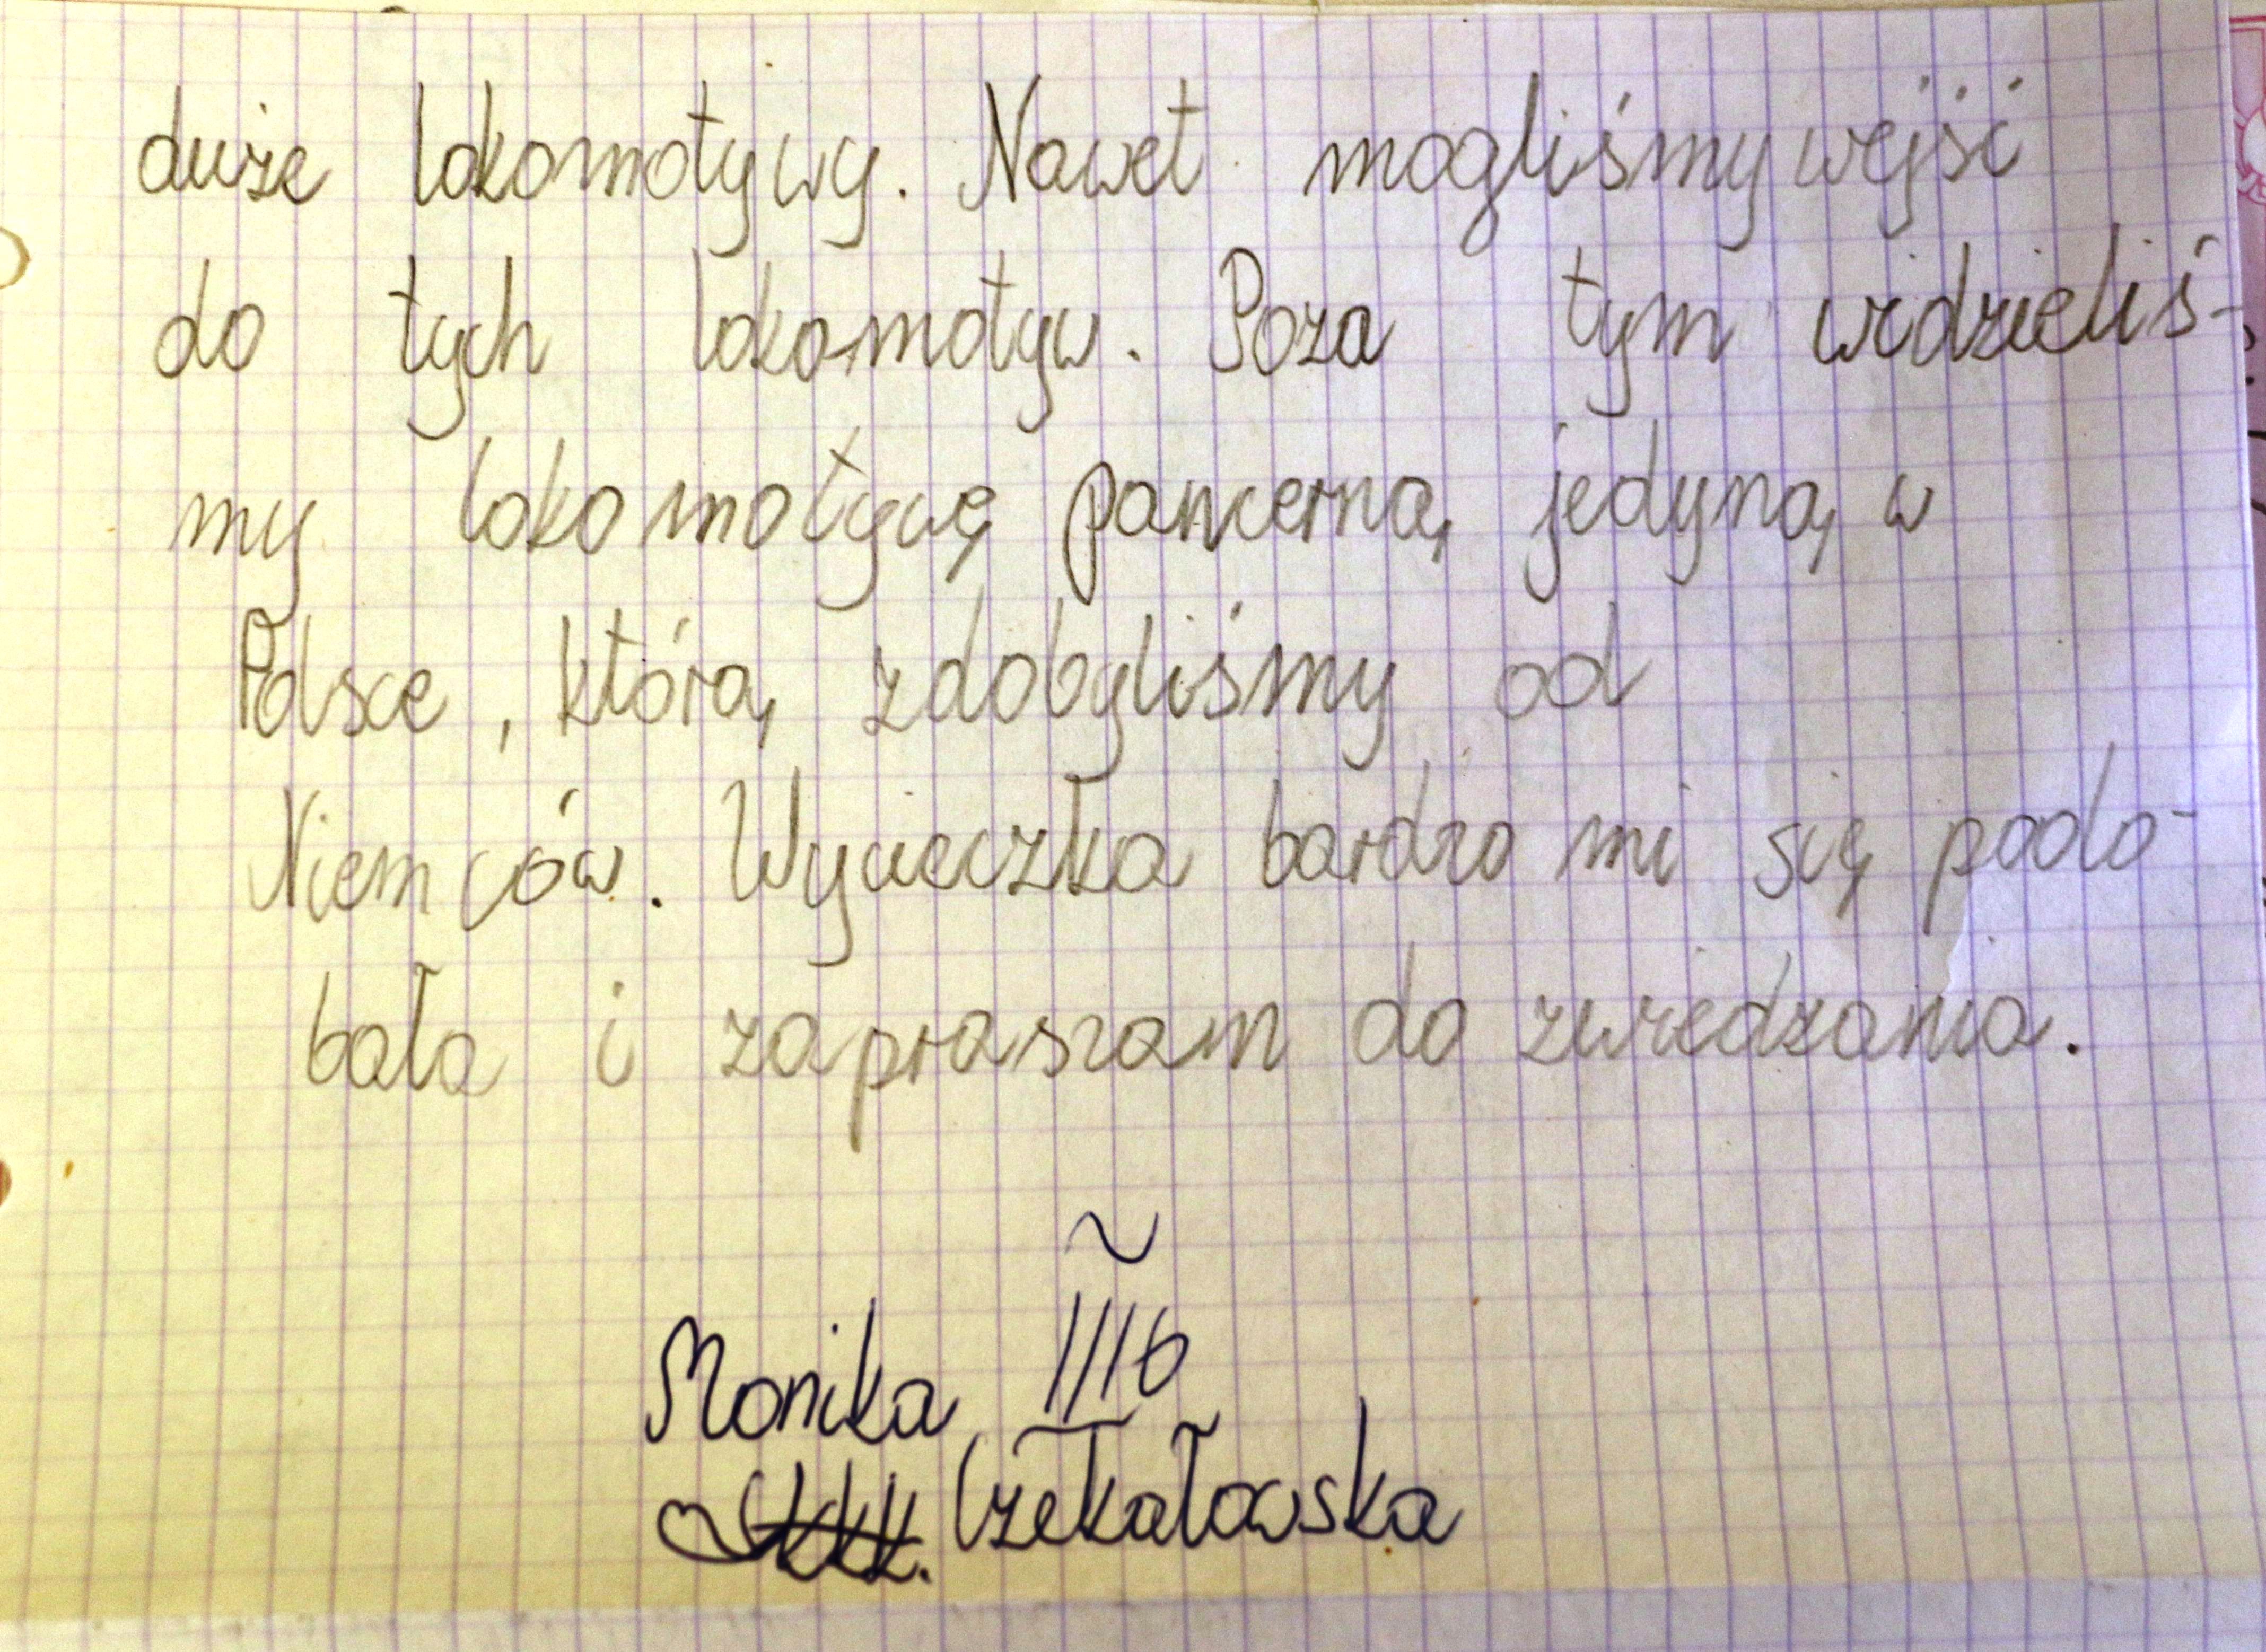 duże lokomotywy. Nawet mogliśmy wejść
do tych lokomotyw. Poza tym widzieliś-
my lokomotywę pancerną jedyną w
Polsce, którą zdobyliśmy od
Niemców. Wycieczka bardzo mi się podo-
bała i zapraszam do zwiedzania.
~
Monika IIIb
Czekałowska